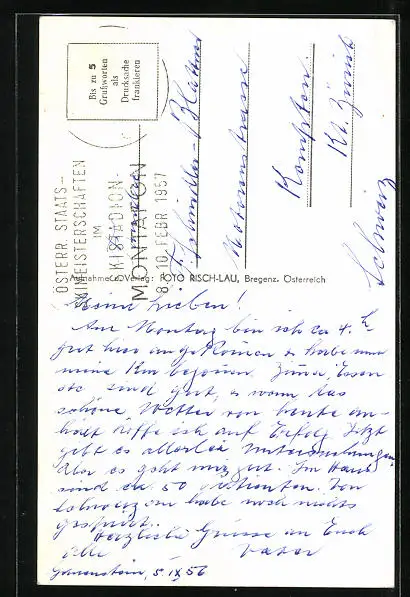 Bis zu 5
Grußworten
als
Drucksache
frankieren
ÖSTERR. STAATS-
SKIMEISTERSCHAFTEN
IM
SKISTADION-
MONTAFON
8.-10. FEBR. 1957
Schindler-Blattner
Kempten
Kt. Zürich
Schweiz
Aufnahme u. Verlag: FOTO RISCH-LAU, Bregenz, Österreich
Meine Lieben!
Am Montag bin ich ca 4 h
gut hier angekommen & habe nun
meine Kur begonnen. Zimmer, Essen
etc sind gut, & wenn das
schöne Wetter von heute an-
hält hoffe ich auf Erfolg. Jetzt
gibt es allerlei Untersuchungen
Aber es geht mir gut. Im Haus
sind ca. 50 Patienten. Von
Schmerzen habe noch nichts
gespürt.
Herzliche Grüsse an Euch
alle Vater
5. IX 56